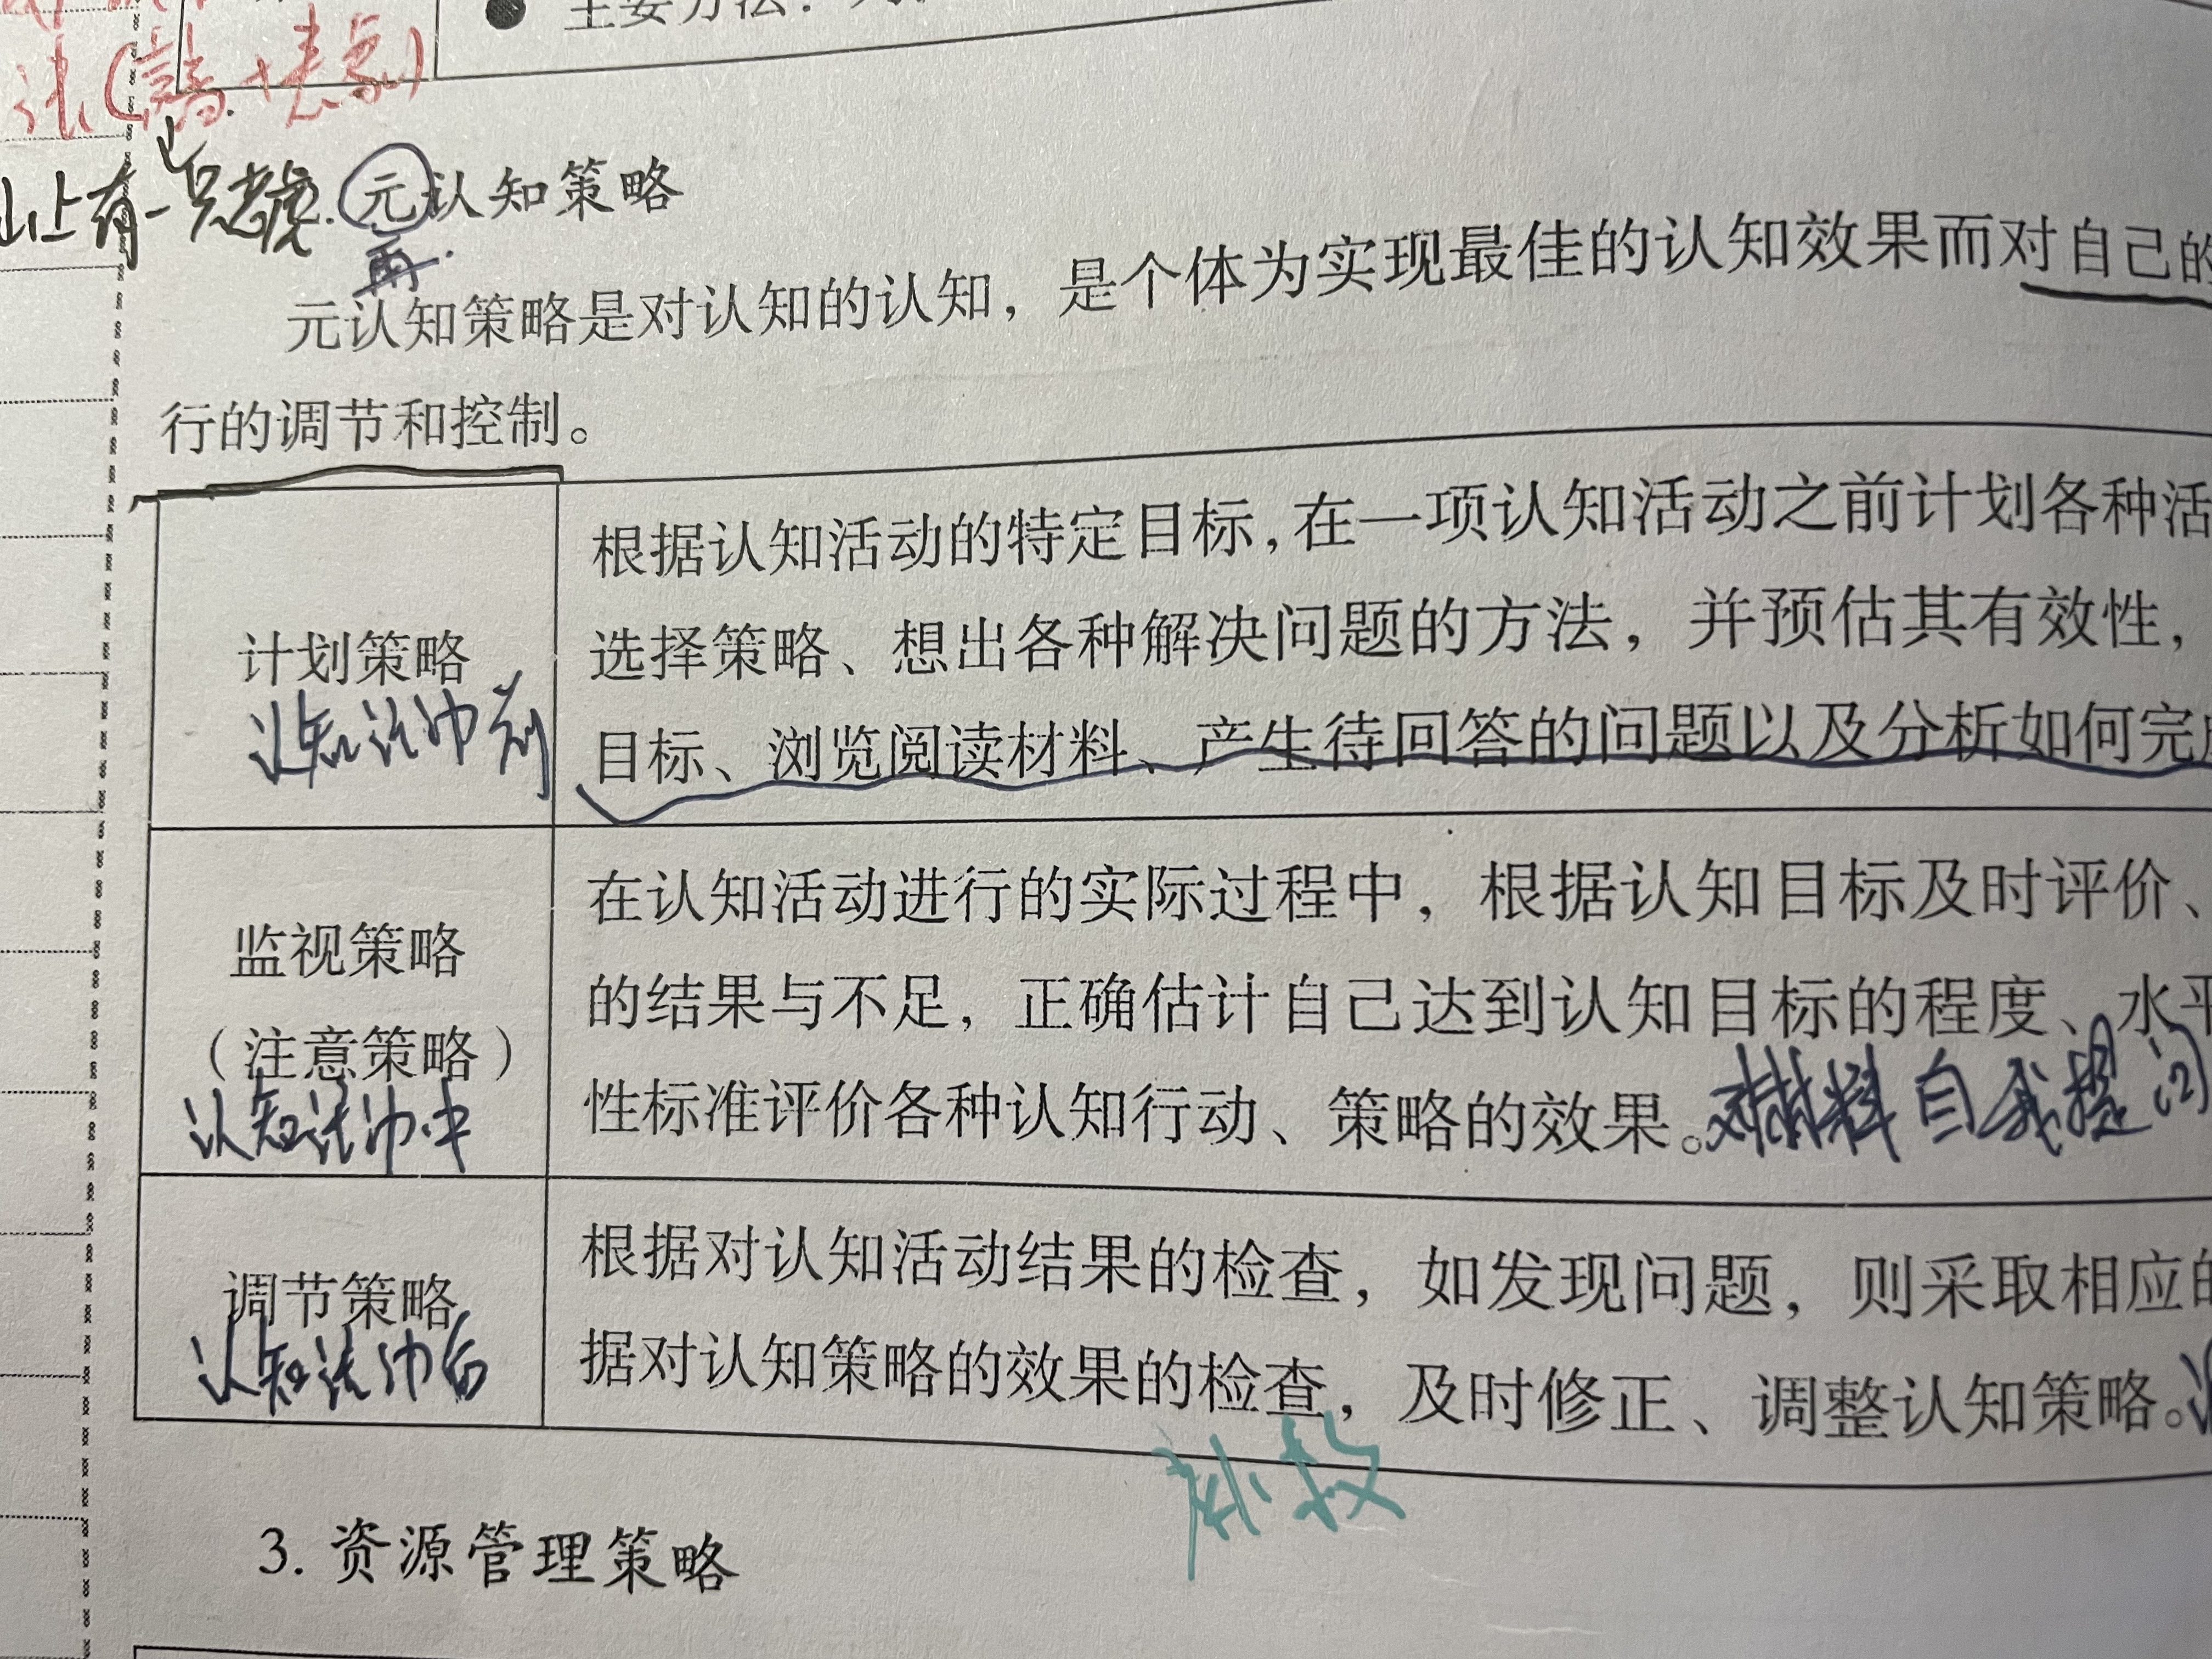 主要方法：
山上有一只老虎.
元认知策略
再
元认知策略是对认知的认知，是个体为实现最佳的认知效果而对自己的
行的调节和控制。
根据认知活动的特定目标，在一项认知活动之前计划各种活
计划策略
选择策略、想出各种解决问题的方法，并预估其有效性，
认知活动前
目标、浏览阅读材料、产生待回答的问题以及分析如何完成
在认知活动进行的实际过程中，根据认知目标及时评价、
监视策略
的结果与不足，正确估计自己达到认知目标的程度、水平
（注意策略）
性标准评价各种认知行动、策略的效果。对材料自我提问
认知活动中
根据对认知活动结果的检查，如发现问题，则采取相应的
调节策略
据对认知策略的效果的检查，及时修正、调整认知策略。
认知活动后
3. 资源管理策略